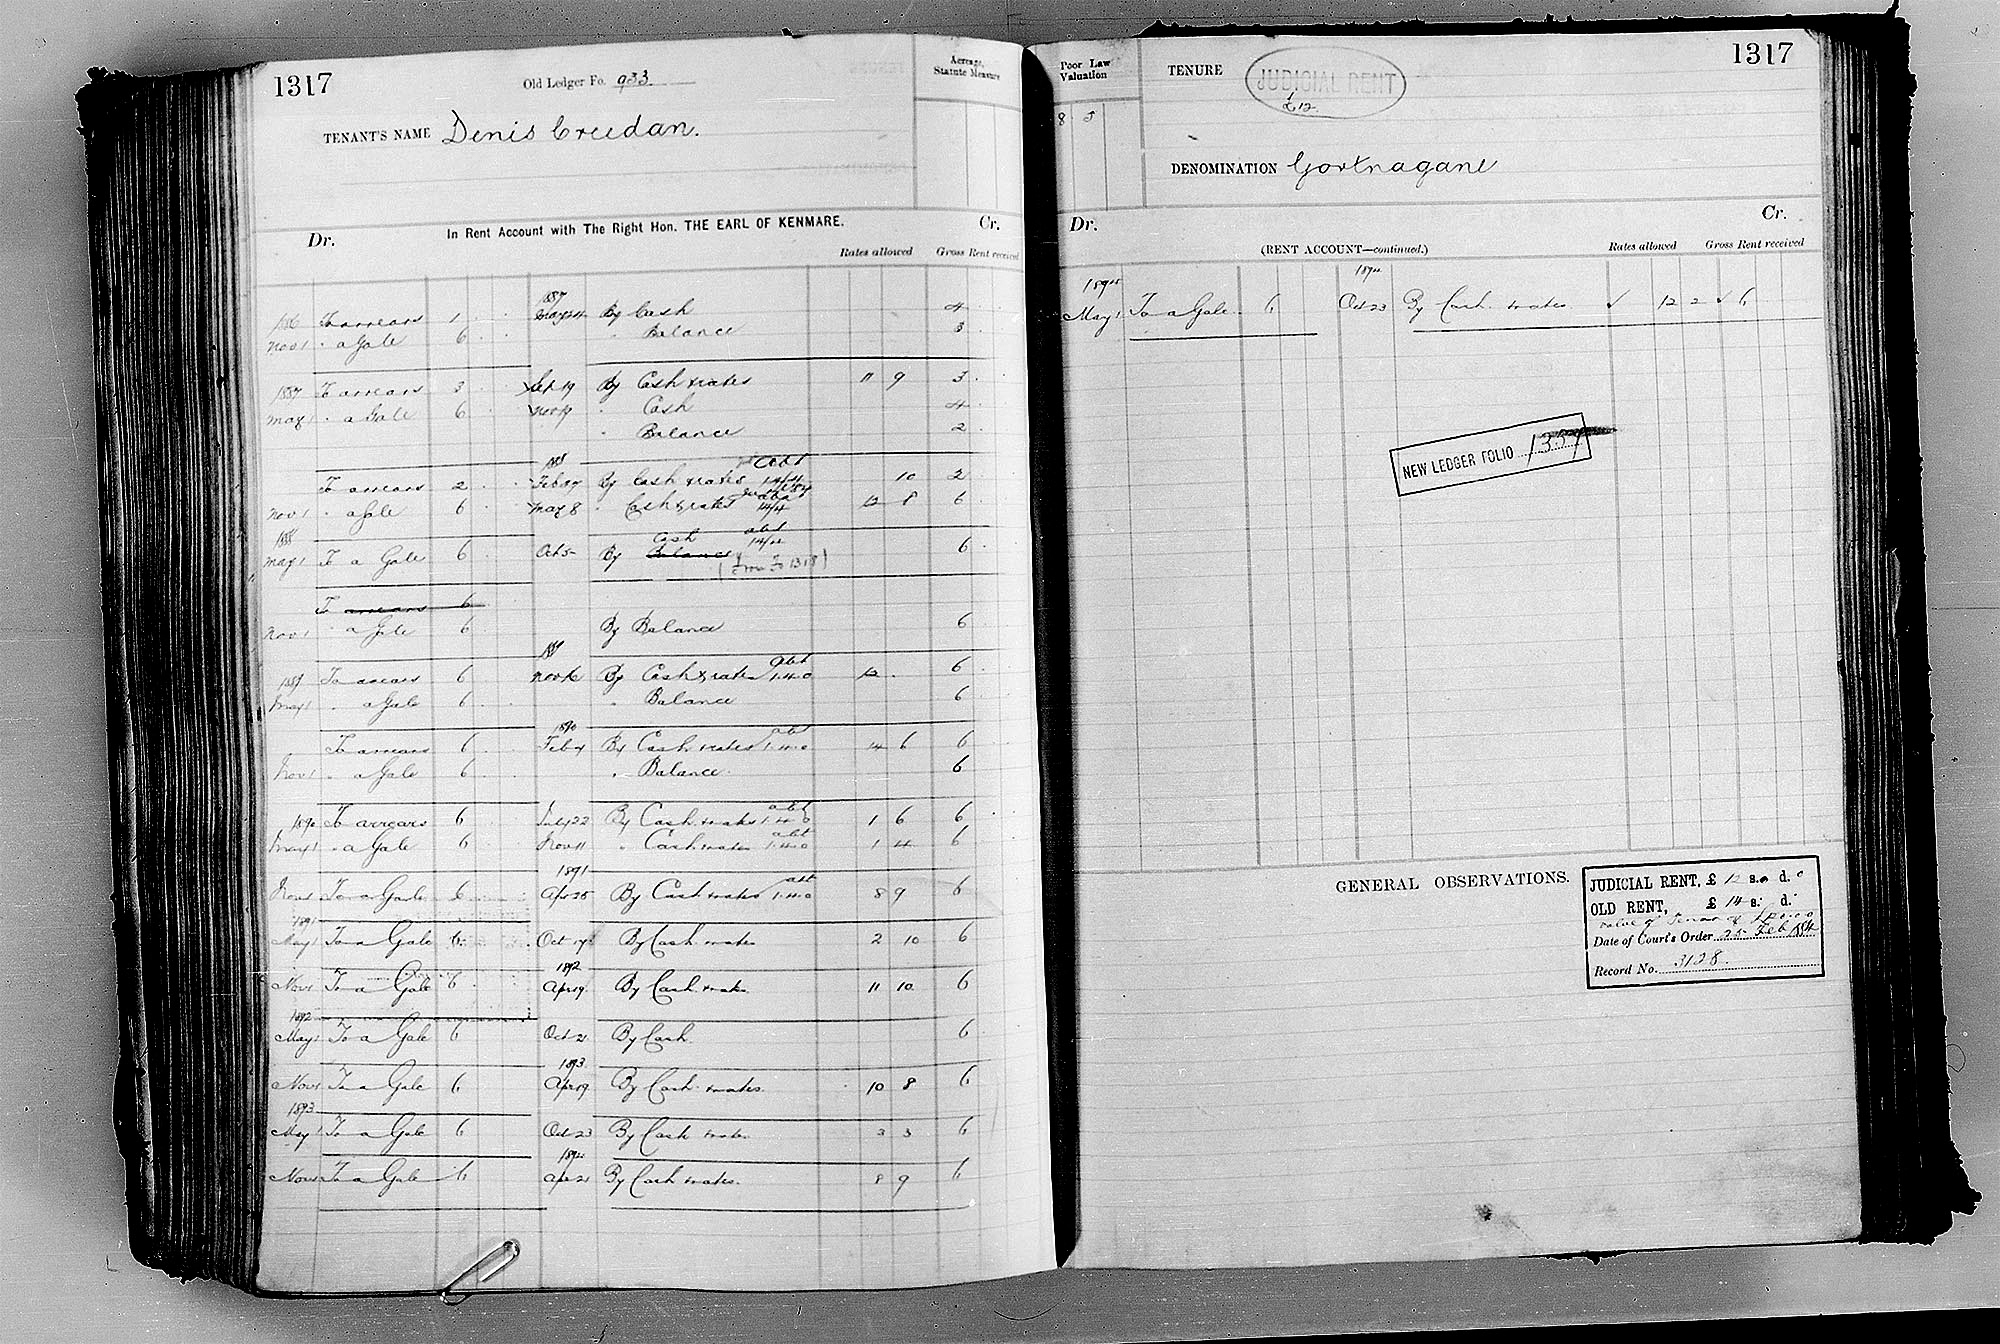 1317
Old Ledger Fo. 933
Acreage, Statute Measure
TENANT'S NAME Denis Creedan.
In Rent Account with The Right Hon. THE EARL OF KENMARE.
Dr.
Cr.
Rates allowed Gross Rent received
1887
1886 To arrears 1 May 24 By Cash 4
Nov 1 " a Gale 6 " Balance 3
1887 To arrears 3 Sept 19 By Cash & rates 11 9 3
May 1 " a Gale 6 Nov 19 " Cash 4
" Balance 2
1888
To arrears 2 Feb 27 By Cash & rates 14/4 10 2
Nov 1 " a Gale 6 May 8 " Cash & rates 14/4 12 8 6
1888 Cash abt
May 1 To a Gale 6 Oct 5 By Balance 6
(From Fo 1318)
To arrears 6
Nov 1 " a Gale 6 By Balance 6
1889
1889 To arrears 6 Nov 16 By Cash & rates abt 1.4.0 12 6
May 1 " a Gale 6 " Balance 6
1890
To arrears 6 Feb 4 By Cash & rates abt 1.4.0 14 6 6
Nov 1 " a Gale 6 " Balance 6
1890 To arrears 6 July 22 By Cash & rates abt 1.4.0 1 6 6
May 1 " a Gale 6 Nov 11 " Cash & rates abt 1.4.0 1 4 6
1891
Nov 1 To a Gale 6 Apr 25 By Cash & rates abt 1.4.0 8 9 6
1891
May 1 To a Gale 6 Oct 17 By Cash & rates 2 10 6
1892
Nov 1 To a Gale 6 Apr 19 By Cash & rates 11 10 6
1892
May 1 To a Gale 6 Oct 21 By Cash 6
1893
Nov 1 To a Gale 6 Apr 19 By Cash & rates 10 8 6
1893
May 1 To a Gale 6 Oct 23 By Cash & rates 3 3 6
1894
Nov 1 To a Gale 6 Apr 21 By Cash & rates 8 9 6
1317
Poor Law Valuation
8 5
TENURE
JUDICIAL RENT
£12
DENOMINATION Gortnagane
Dr.
Cr.
(RENT ACCOUNT—continued.)
Rates allowed Gross Rent received
1894 1894
May 1 To a Gale 6 Oct 23 By Cash & rates 12 2 6
NEW LEDGER FOLIO 1357
GENERAL OBSERVATIONS.
JUDICIAL RENT, £ 12 s. 0 d. 0
OLD RENT, £ 14 s. d.
Value of Tenancy
Date of Court's Order 25 Feb 1884
Record No. 3128